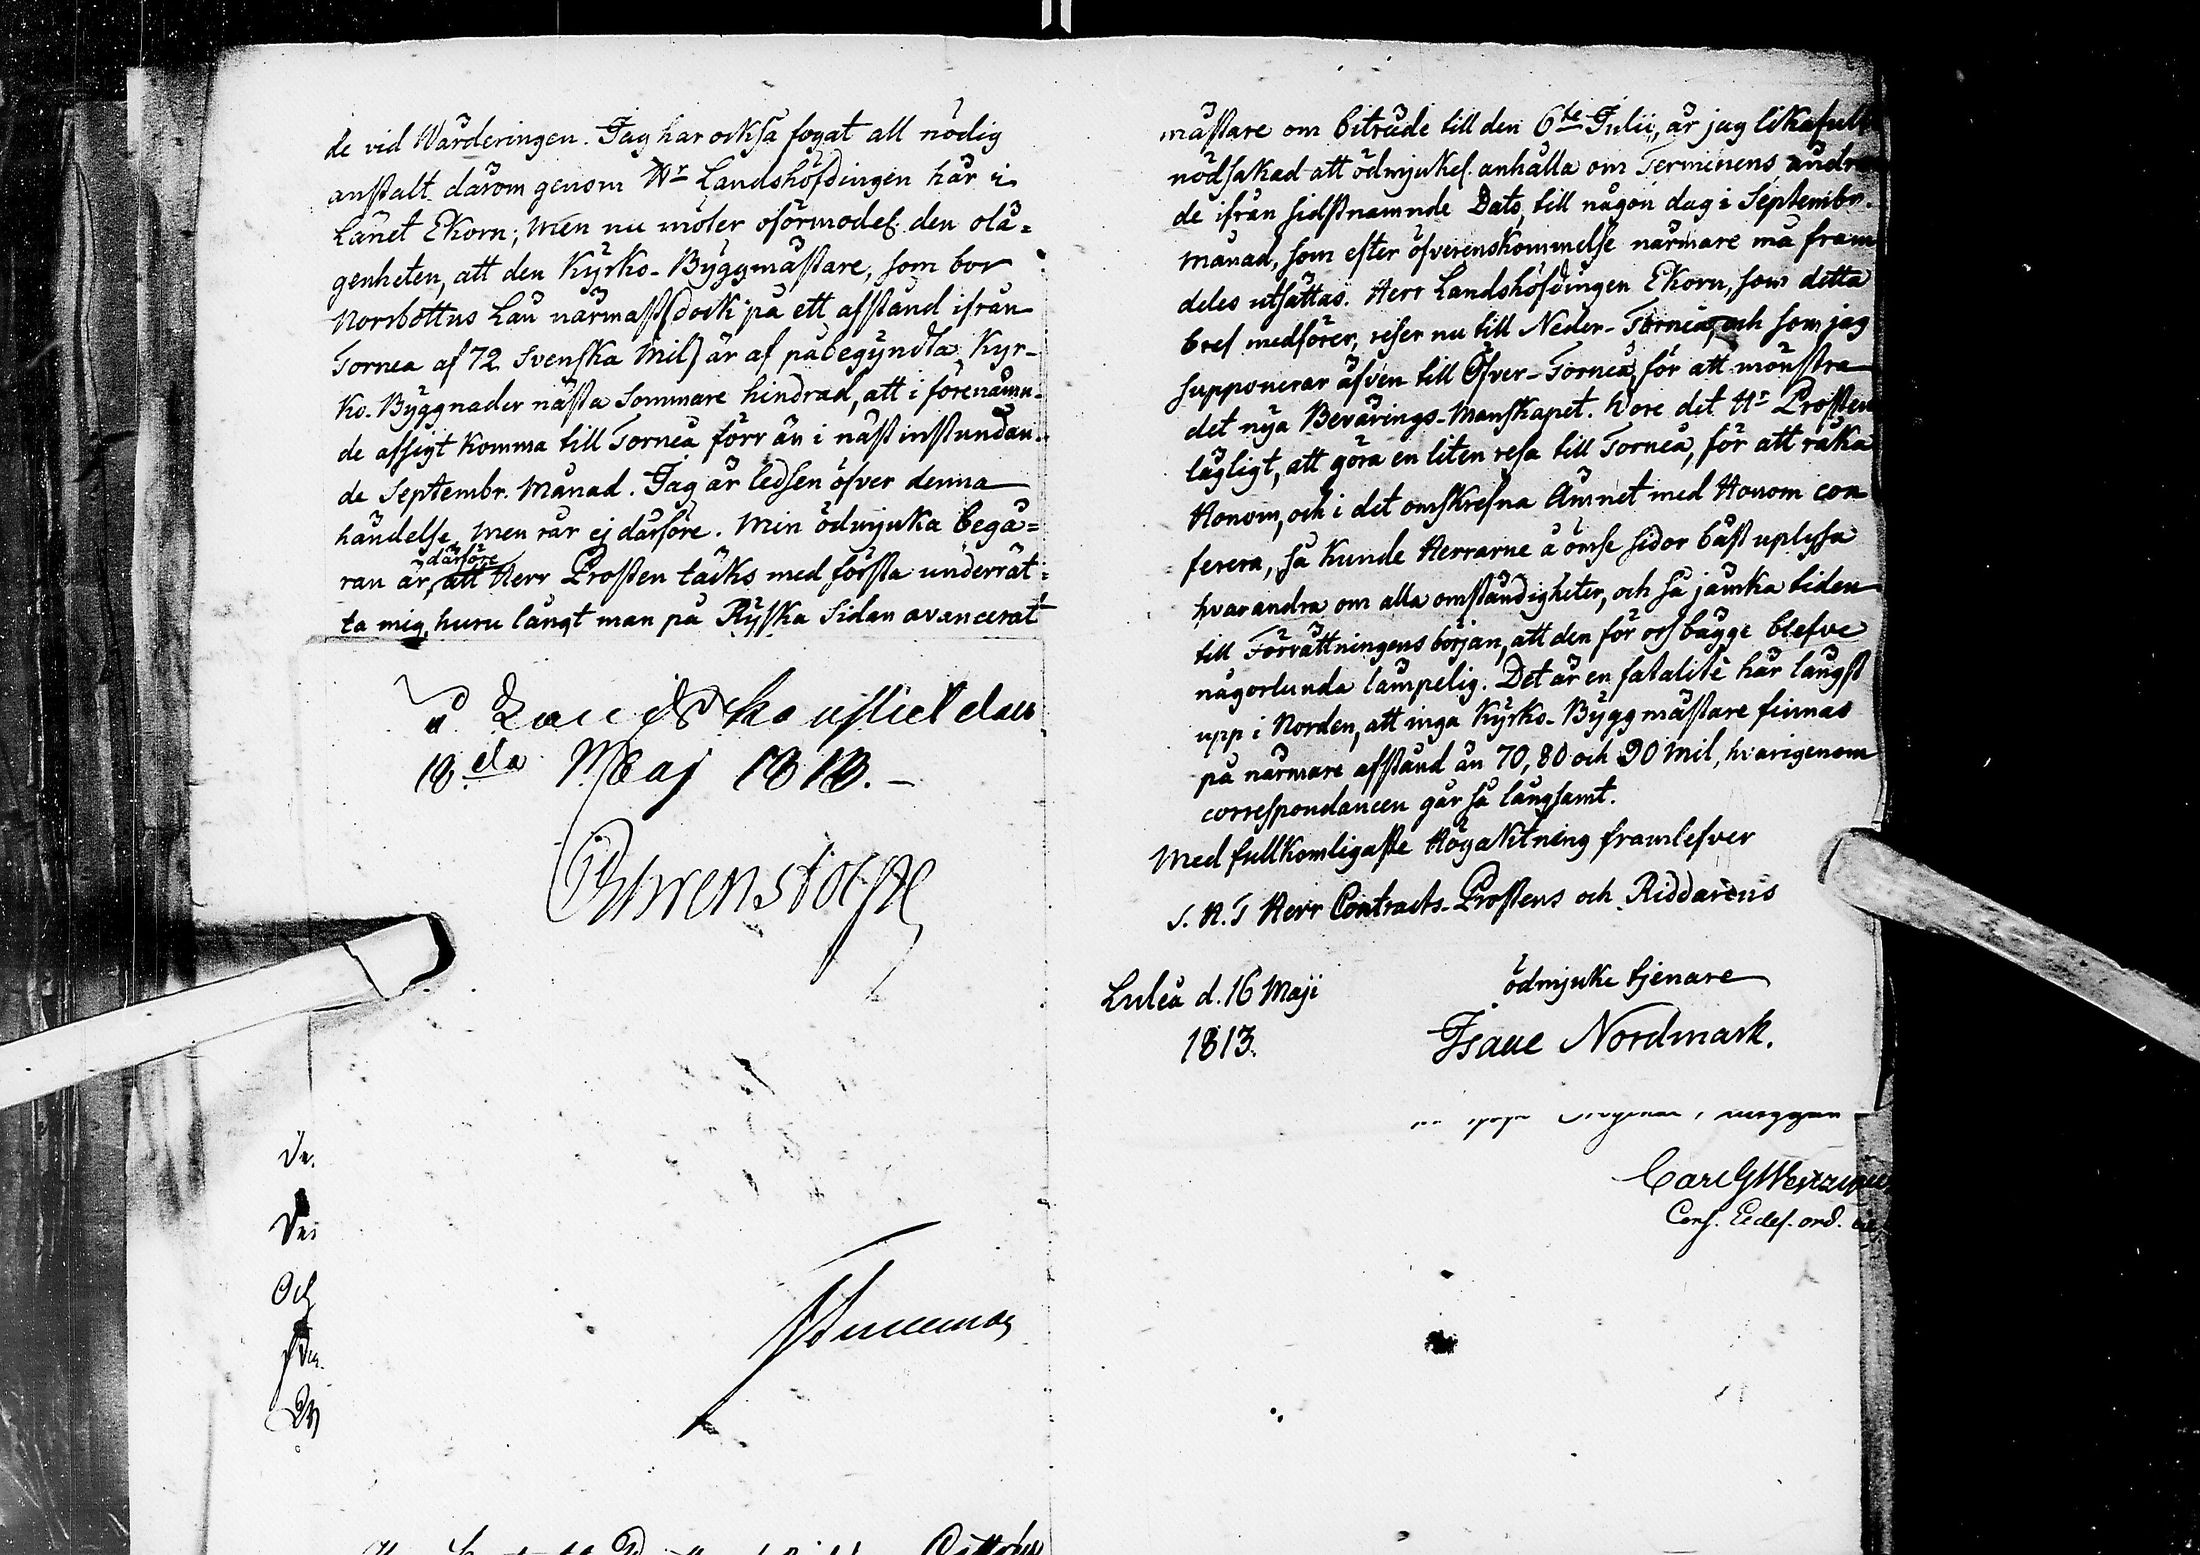 de vid Wärderingen. Jag har också fogat all nödig
anstalt därom genom Hr Landshöfdingen här i
Länet Ekorn; men nu möter oförmodel. den olä=
genheten, att den Kyrko-Byggmästare, som bor
Norrbottns Län närmast (dock på ett afstånd ifrån
Torneå af 72 Svenska Mil) är af påbegyndta Kyr-
ko-Byggnader nästa Sommare hindrad, att i förenämn-
de afsigt komma till Torneå förr än i näst instundan-
de Septembr. Månad. Jag är ledsen öfver denna
händelse, men rår ej därföre. Min ödmjuka begä=
ran är därföre att Herr Prosten täcks med första underrät=
ta mig, huru långt man på Ryska Sidan avancerat
Landskansliet den
18da Maj 1813.
Ehrenstolpe
De
Och
mästare om biträde till den 6te Julii, är jag likafullt
nödsakad att ödmjukel. anhålla om Terminens ändran
de ifrån sidstnämnde Dato, till någon dag i Septembr.
Månad, som efter öfverenskommelse närmare må fram
deles utsättas. Herr Landshöfdingen Ekorn, som detta
bref medförer, reser nu till Neder-Torneå, och som jag
supponerar äfven till Öfver-Torneå, för att mönstra
det nya Bevärings-Manskapet. Wore det Hr Prosten
lägligt, att göra en liten resa till Torneå, för att råka
Honom, och i det omskrefna Ämnet med Honom con
ferera, så kunde Herrarne å ömse sidor bäst uplysa
hvarandra om alla omständigheter, och så jämka tiden
till Förrättningens början, att den för oss bägge blefve
någorlunda lämpelig. Det är en fatalité här längst
upp i Norden, att inga Kyrko-Byggmästare finnas
på närmare afstånd än 70, 80 och 90 Mil, hvarigenom
correspondancen går så långsamt.
Med fullkomligaste Högaktning framlefver
S. H. T Herr Contracts-Prostens och Riddarens
ödmjuke tjenare
Luleå d. 16 Maji
1813.
Isaac Nordmark.
Carl G
Cons. Eccles. ord.